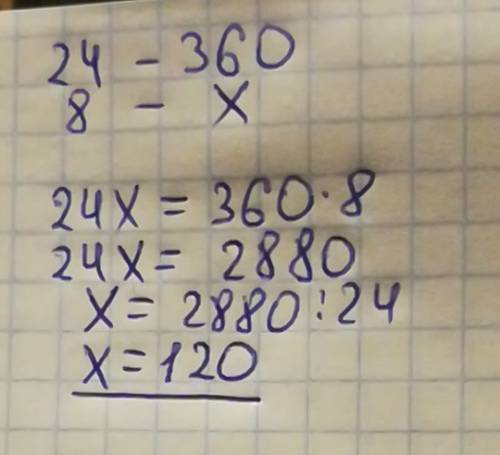 24 - 360
8 - x
24x = 360·8
24x = 2880
x = 2880:24
x = 120